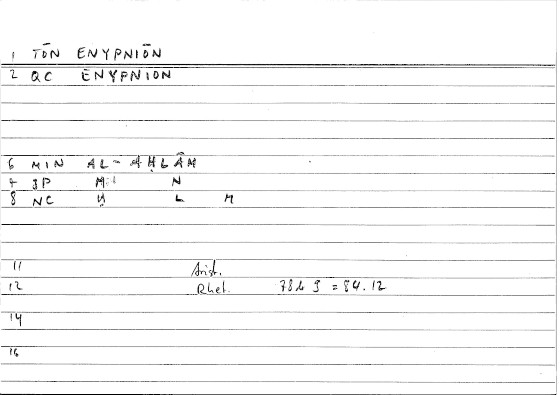 1 TŌN ENYPNIŌN
2 QC ENYPNION
6 MIN AL-AḤLĀM
7 3P M N
8 NC Ḥ L M
11 Arist.
12 Rhet. 78b 9 = 84.12
14
16